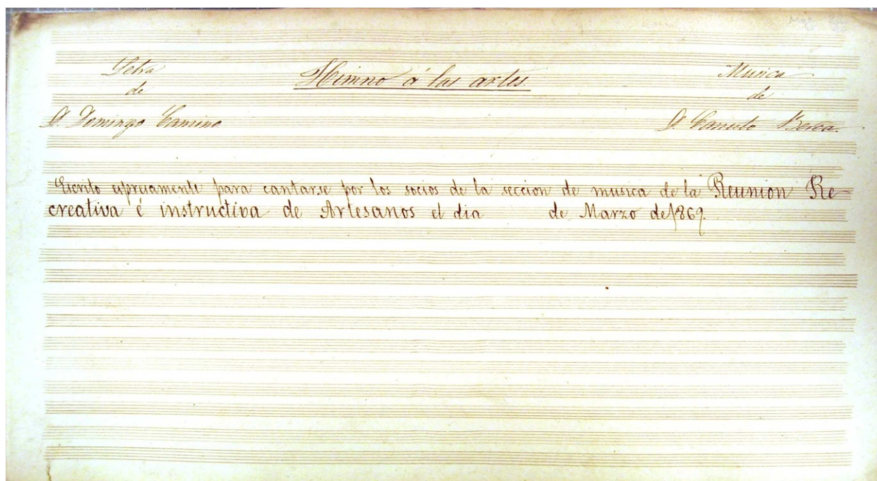 Letra
de
D. Domingo Camino
Himno á las artes
Musica
de
D. Canuto Berea.
Escrito espresamente para cantarse por los socios de la seccion de musica de la Reunion Re-
creativa é instructiva de Artesanos el dia de Marzo de 1869.